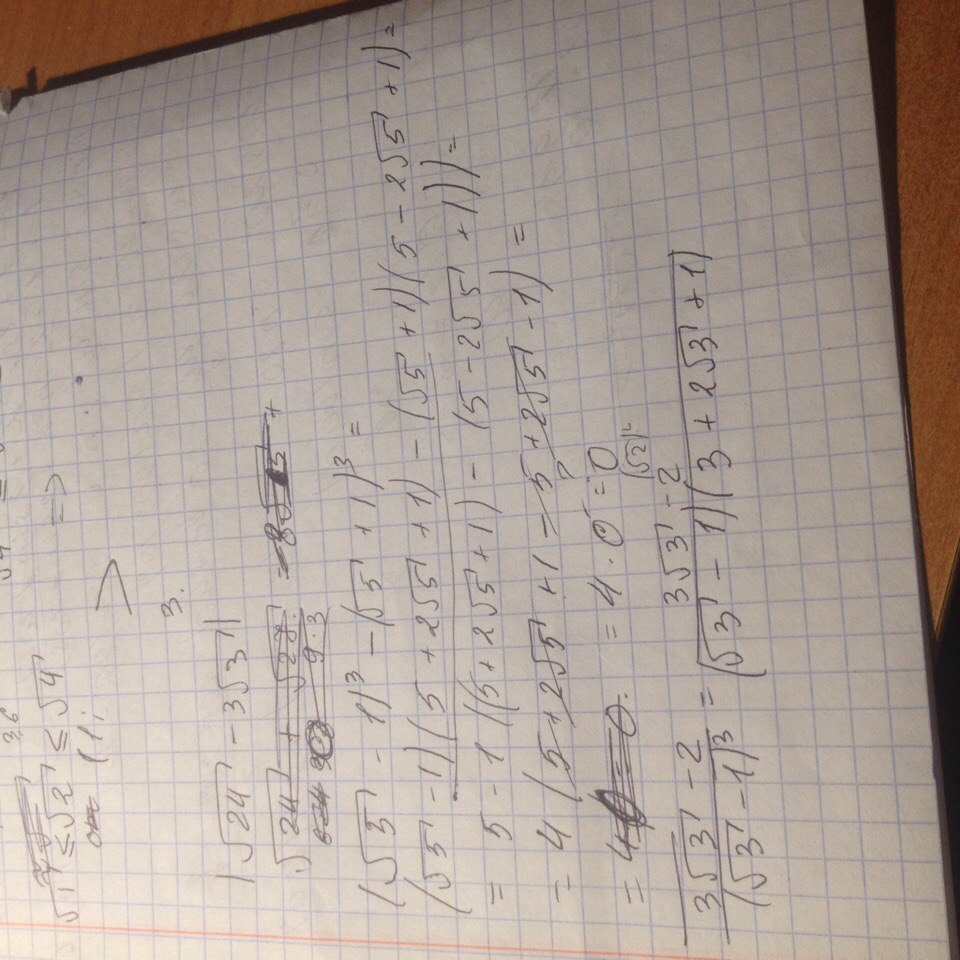 √1 ≤ √2 ≤ √4
1;
=>
>
3.
|√24 - 3√3|
√24 + √27
9·3
(√3 - 1)³ - (√5 + 1)³ =
(√5 - 1)(5 + 2√5 + 1) - (√5 + 1)(5 - 2√5 + 1) =
= 5 - 1 ((5 + 2√5 + 1) - (5 - 2√5 + 1)) =
= 4 (5 + 2√5 + 1 - 5 + 2√5 - 1) =
= 4 · 0 = 0
(√2)²
3√3 - 2 = 3√3 - 2
(√3 - 1)³ (√3 - 1)(3 + 2√3 + 1)